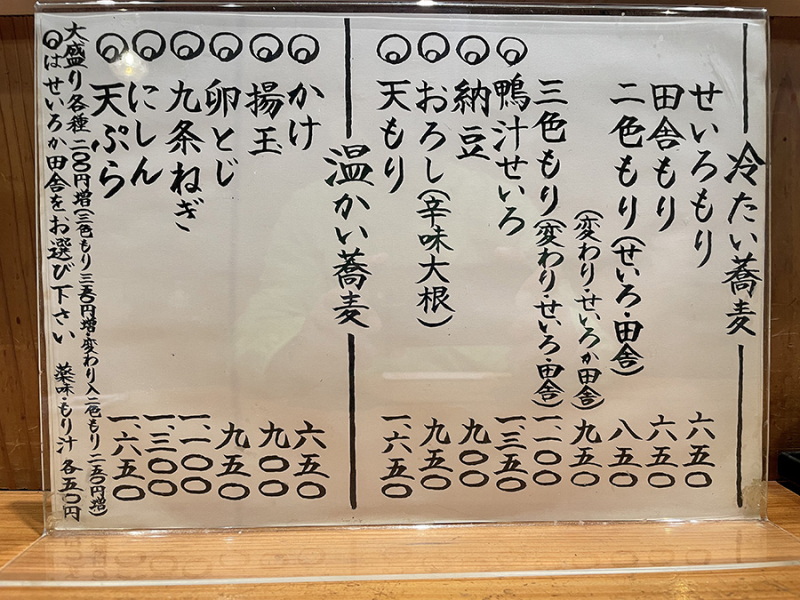 冷たい蕎麦
せいろもり 六五〇
田舎もり 六五〇
二色もり(せいろ・田舎) 八五〇
(変わり・せいろか田舎) 九五〇
三色もり(変わり・せいろ・田舎) 一、一〇〇
◎鴨汁せいろ 一、三五〇
◎納豆 九〇〇
◎おろし(辛味大根) 九五〇
◎天もり 一、六五〇
温かい蕎麦
◎かけ 六五〇
◎揚玉 九〇〇
◎卵とじ 九五〇
◎九条ねぎ 一、一〇〇
◎にしん 一、三〇〇
◎天ぷら 一、六五〇
大盛り各種二〇〇円増(三色もり三五〇円増・変わり入二色もり二五〇円増)
◎はせいろか田舎をお選び下さい 薬味・もり汁 各五〇円